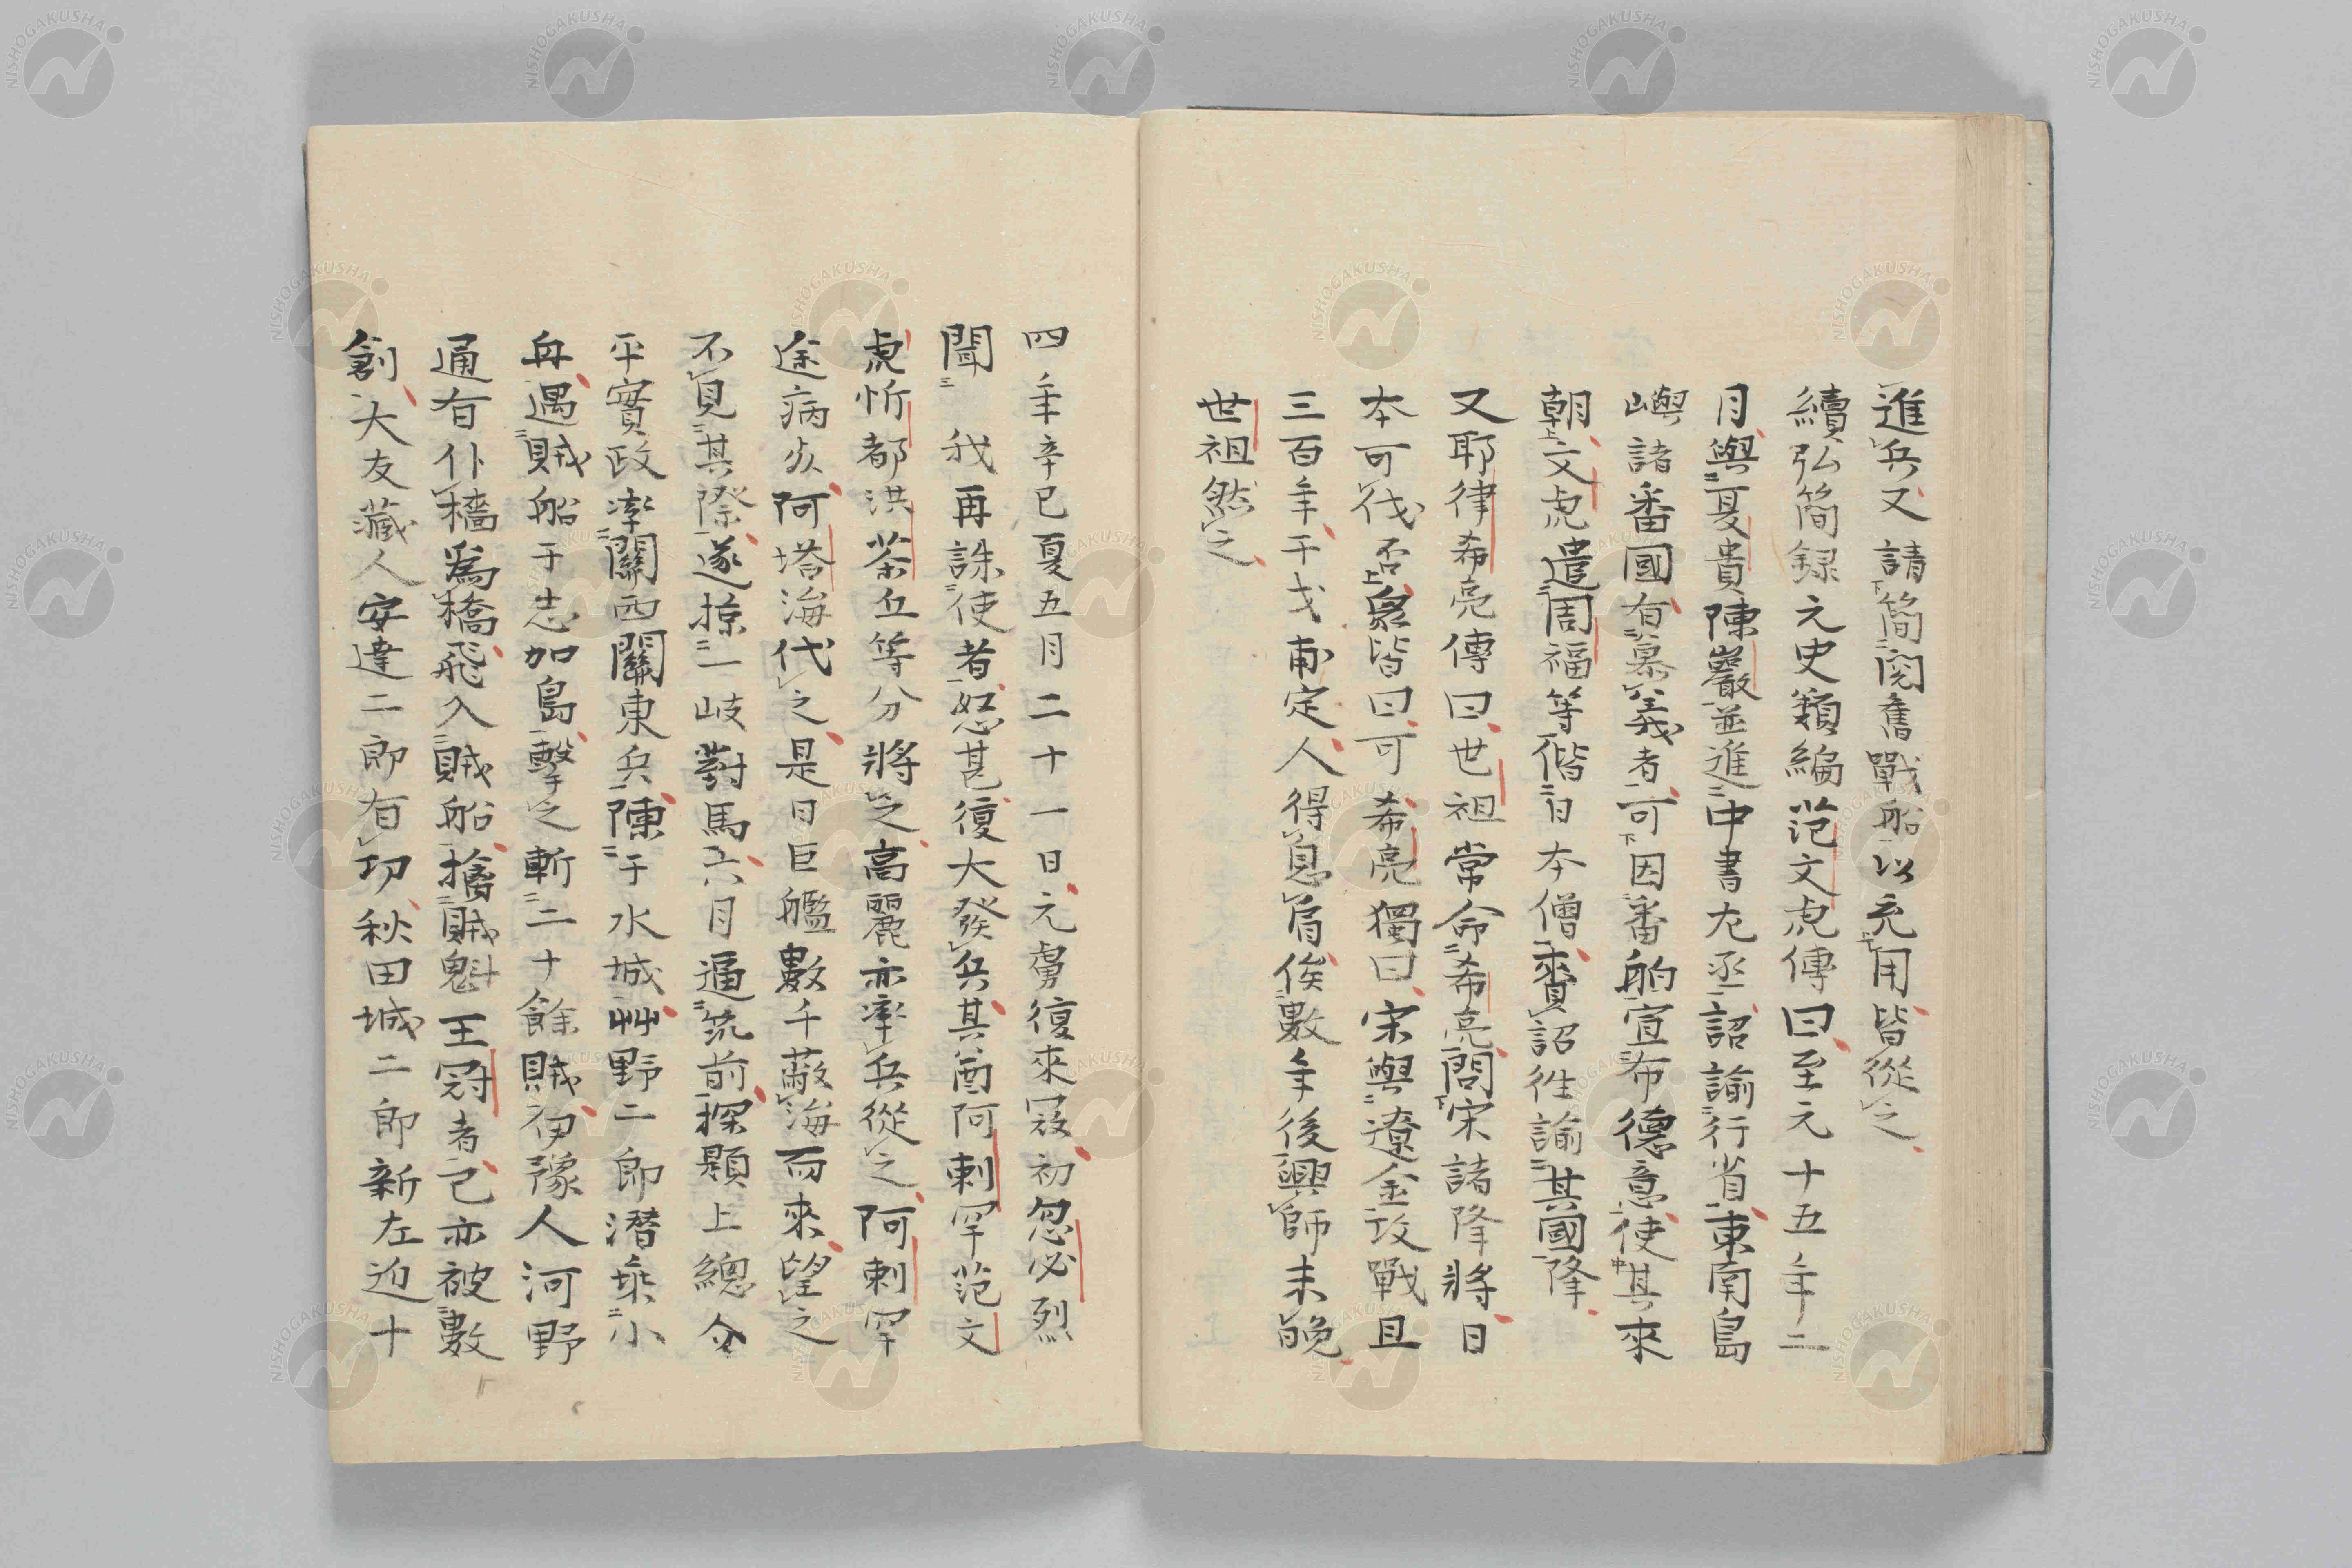 進兵又請簡閱舊戰船以充用皆從之
續弘簡録元史類編范文虎傳曰至元十五年二
月與夏貴陳巖並進中書左丞詔諭行省東南島
嶼諸番國有慕義者可因番舶宣布德意使其來
朝文虎遣周福等偕日本僧賷詔往諭其國降
又耶律希亮傳曰世祖常命希亮問宋諸降將日
本可伐否衆皆曰可希亮獨曰宋與遼金攻戰且
三百年干戈甫定人得息肩俟數年後興師未晩
世祖然之
四年辛巳夏五月二十一日元虜復來寇初忽必烈
聞我再誅使者怒甚復大發兵其酋阿剌罕范文
虎忻都洪茶丘等分將之高麗亦率兵從之阿剌罕
途病死阿塔海代之是日巨艦數千蔽海而來望之
不見其際遂掠一岐對馬六月逼筑前探題上總介
平實政率關西關東兵陳于水城艸野二郎潛乘小
舟遇賊船于志加島擊之斬二十餘賊伊豫人河野
通有仆檣爲橋飛入賊船擒賊魁王冠者己亦被數
創大友藏人安達二郎有功秋田城二郎新左近十
NISHOGAKUSHA